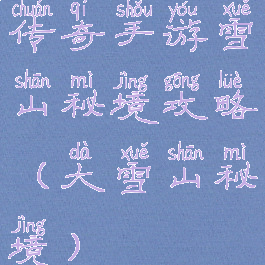 chuán qí shǒu yóu xuě
传奇手游雪
shān mì jìng gōng lüè
山秘境攻略
dà xuě shān mì
（大雪山秘
jìng
境）